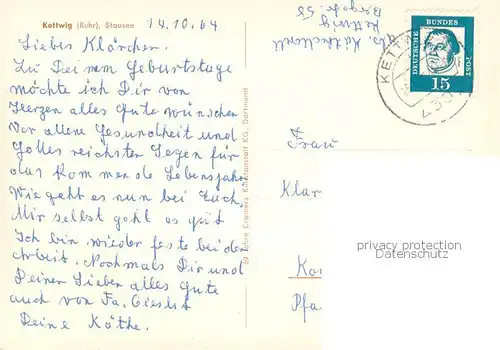 Kettwig (Ruhr), Stausee
14.10.64
Liebes Klärchen.
Zu Deinem Geburtstage
möchte ich Dir von
Herzen alles Gute wünschen
Vor allem Gesundheit und
Gottes reichsten Segen für
das kommende Lebensjahr
Wie geht es nun bei Euch.
Mir selbst geht es gut
Ich bin wieder feste bei der
Arbeit. Nochmals Dir und
Deinen Lieben alles Gute
auch von Fa.
Deine Käthe.
Jahre Crüwells Kunstanstalt KG, Dortmund
Kettwig
55
DEUTSCHE BUNDES POST
15
KETT
Frau
Klar
Ka
Pfa
privacy protection
Datenschutz